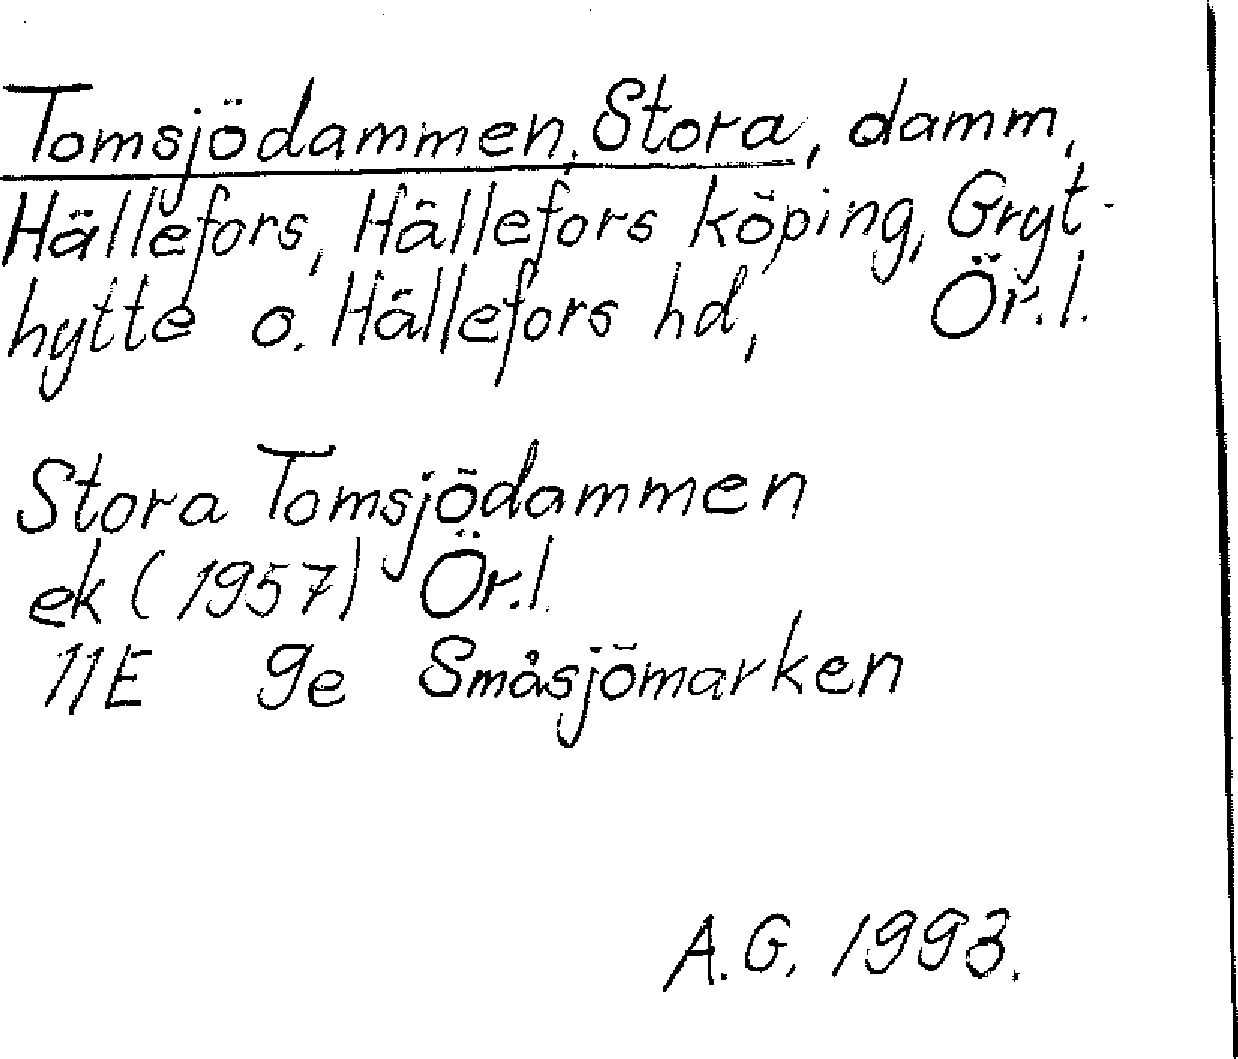 Tomsjödammen, Stora, damm,
Hällefors, Hällefors köping, Gryt-
hytte o. Hällefors hd, Ör.l.
Stora Tomsjödammen
ek (1957) Ör.l.
11E 9e Småsjömarken
A.G. 1993.